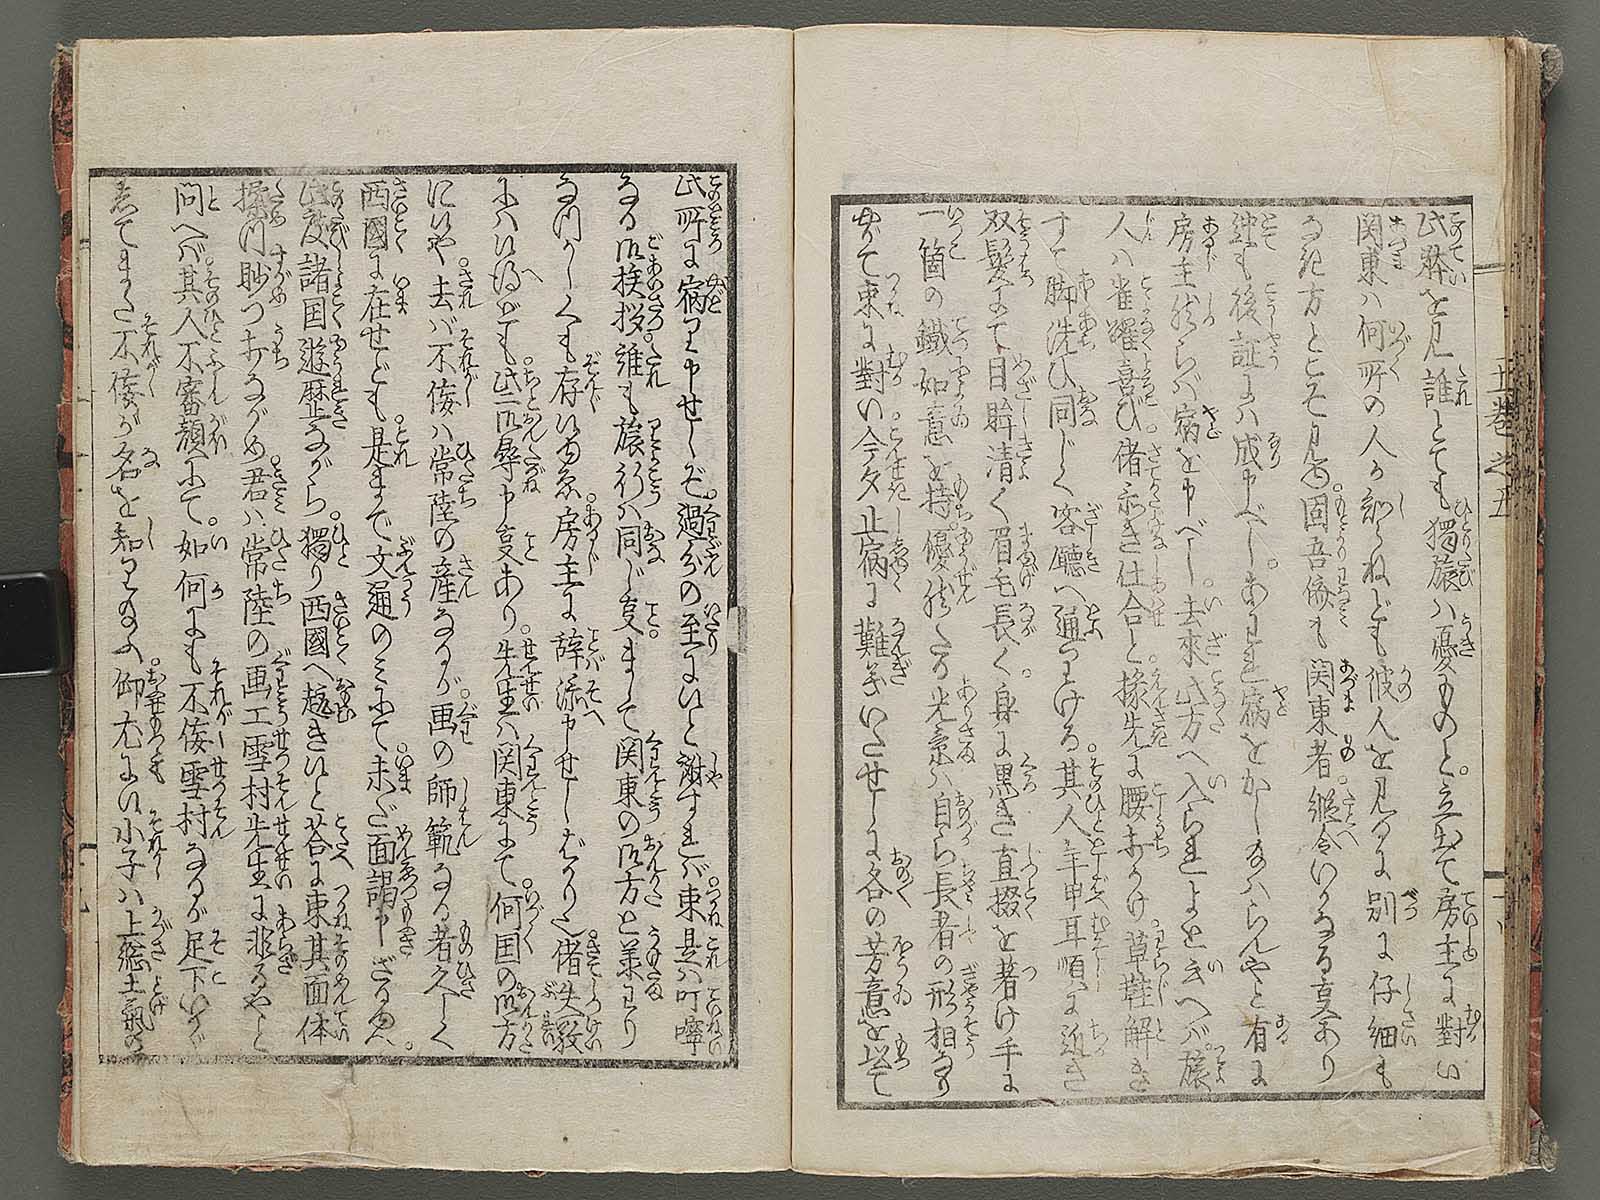 此躰を見誰とても獨旅は憂ものと。立出て房主に對い
関東は何所の人か知らねども彼人を見るに別に仔細も
なき方とこそ見ゆ。固吾儕も関東者縦令いかなる亰あり
迚も後証には成申べし。あはれ宿をかし給はらんやと有に
房主然らば宿を申べし。去來此方へ入られよといへバ。旅
人ハ雀躍喜び偖永き仕合と椽先に腰打かけ。草鞋解き
すて脚洗ひ同じく客廳へ通りける。其人年甲耳順に近き
双鬂にて目眸清く眉毛長く。身に黒き直掇を著け手に
一箇の鐵如意を持。優然たる光景ハ自ら長者の形相あり
出て東に對い今夕止宿に難義いたせしに各の芳意を以て
五巻之五
此所に宿り申せしぞ。過分の至にいと謝すれバ東是ハ叮嚀
なる御挨拶誰も旅行ハ同じ支。まして関東の御方と承わり
なつかしくも存い故。房主に辞添申せしばかりた。偖失敬
にハいへども些御尋申支あり。先生ハ関東にて。何国の御方
にいや。去バ不佞ハ常陸の産なるが。画の師範なる者久しく
西國に在せども。是まで文通のミにて未だ面謁申ざるゆへ。
此度諸国遊歴ながら。獨り西國へ趣きいと荅に東其面体
操つ眇つ打ながめ。君ハ常陸の画工雪村先生に非るやと
問へバ其人不審顔にて。如何にも不佞雪村なるが足下いかが
志てまた不佞が名を知りたまふ。御尤にい小子ハ上総土氣の